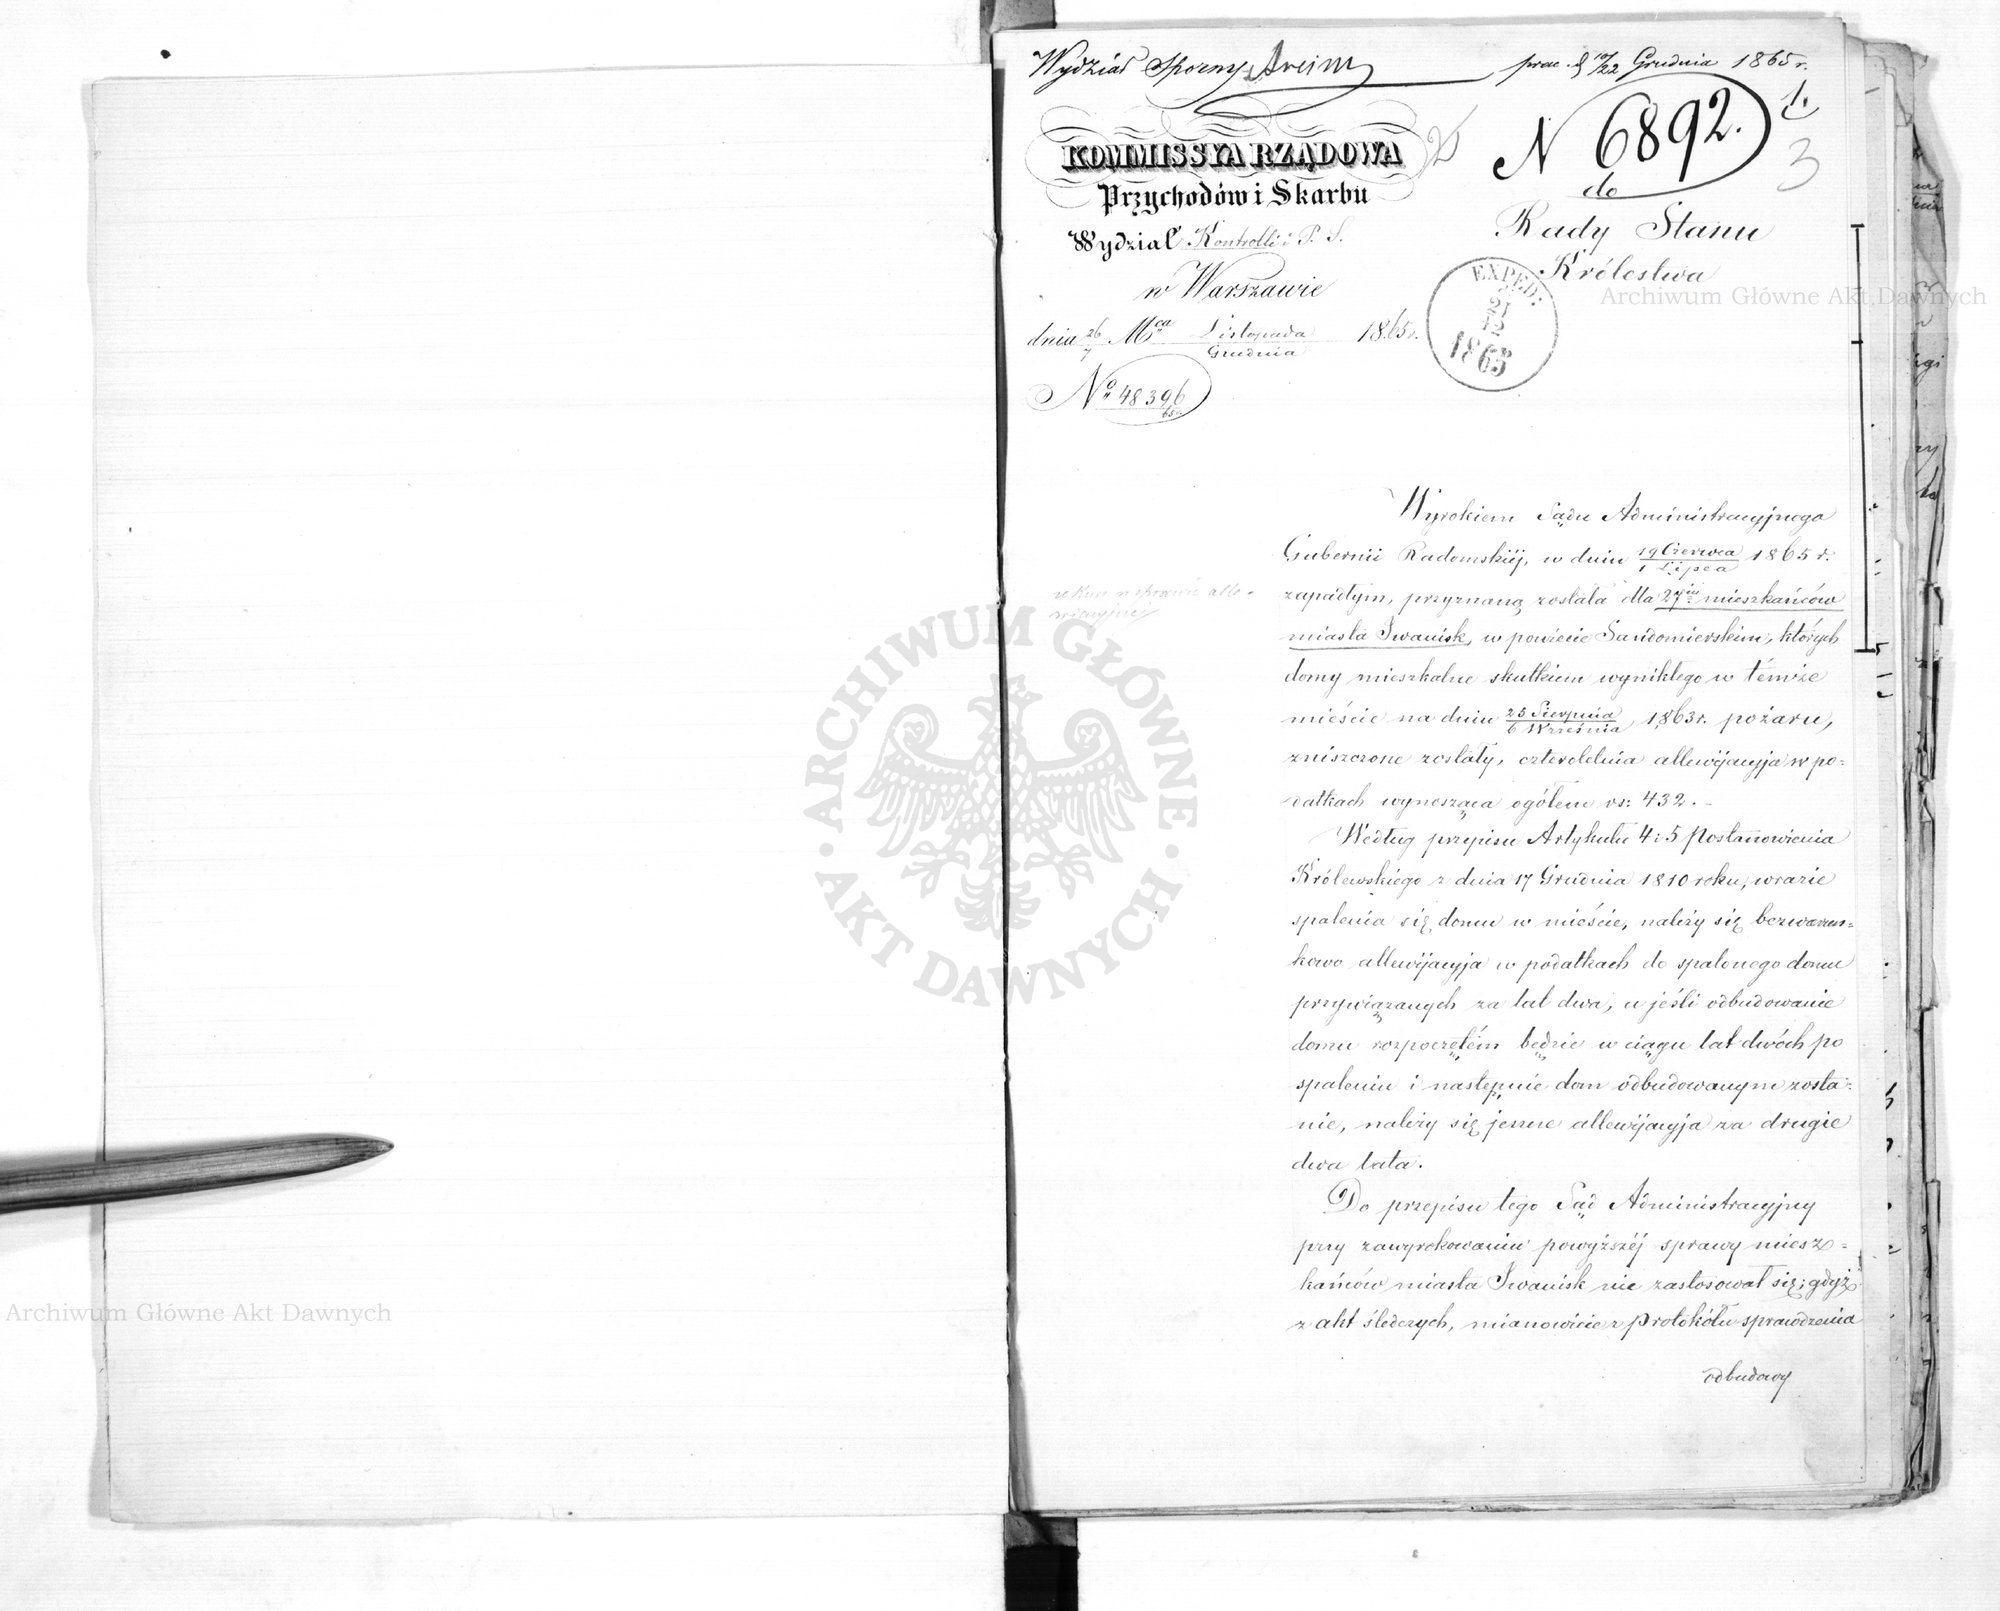 Wydział Sporny
prae. d. 10/22 Grudnia 1865 r.
1.
N 6892.
3
KOMMISSYA RZĄDOWA
Przychodów i Skarbu
Wydział Kontrolli i P. S.
w Warszawie
dnia 26/7 Mca Listopada/Grudnia 1865 r.
No 48396
65 r.
do
Rady Stanu
Królestwa
EXPED:
1865
Archiwum Główne Akt Dawnych
Wyrokiem Sądu Administracyjnego
Gubernii Radomskiej, w dniu 19 Czerwca/1 Lipca 1865 r.
zapadłym, przyznaną została dla 27miu mieszkańców
miasta Iwanisk, w powiecie Sandomierskim, których
domy mieszkalne skutkiem wynikłego w témże
mieście na dniu 25 Sierpnia/6 Września 1863 r. pożaru,
zniszczone zostały, czteroletnia allewijacyja w po=
datkach wynosząca ogółem rs: 432. –
Według przepisu Artykułu 4 i 5 Postanowienia
Królewskiego z dnia 17 Grudnia 1810 roku, w razie
spalenia się domu w mieście, należy się bezwarun=
kowo allewijacyja w podatkach do spalonego domu
przywiązanych za lat dwa, a jeśli odbudowanie
domu rozpoczętém będzie w ciągu lat dwóch po
spaleniu i następnie dom odbudowanym zosta=
nie, należy się jeszcze allewijacyja za drugie
dwa lata.
Do przepisu tego Sąd Administracyjny
przy zawyrokowaniu powyższéj sprawy miesz=
kańców miasta Iwanisk nie zastosował się; gdyż
z akt śledczych, mianowicie z protokółu sprawdzenia
odbudowy
ARCHIWUM GŁÓWNE
AKT DAWNYCH
Archiwum Główne Akt Dawnych